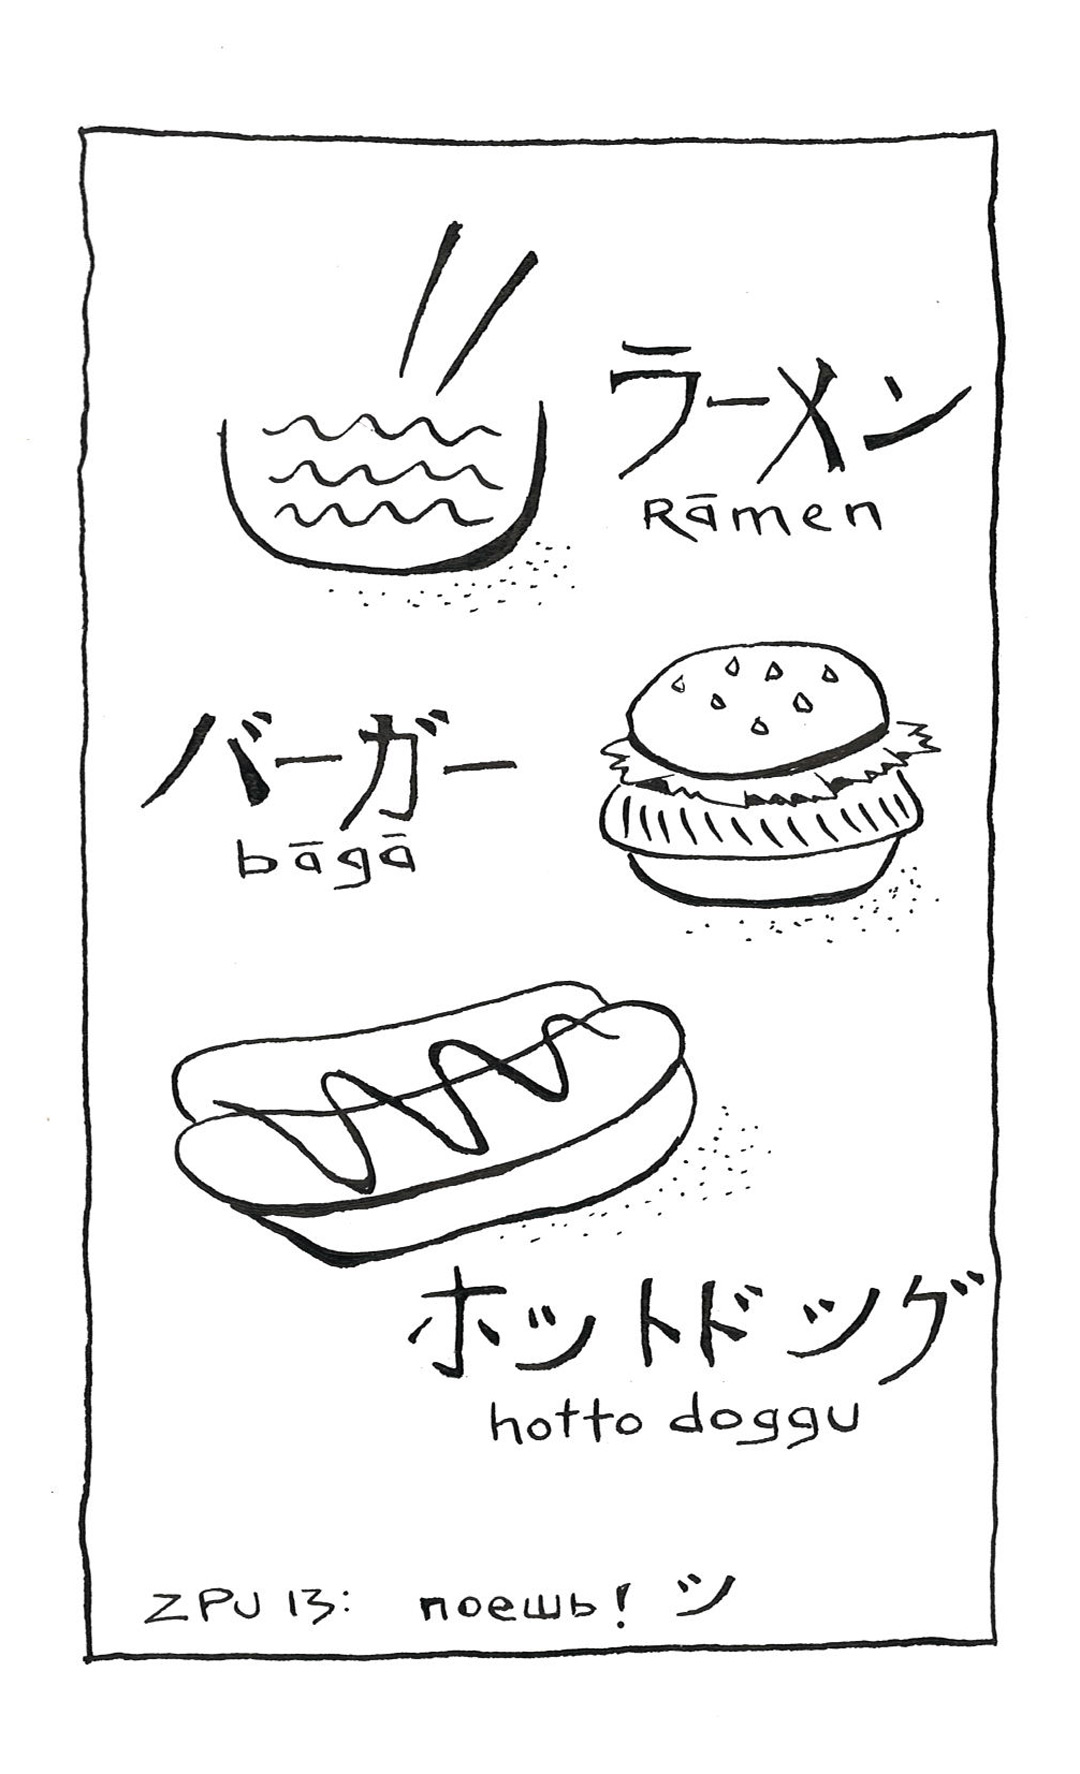 ラーメン
Rāmen
バーガー
bāgā
ホットドッグ
hotto doggu
ZPU 13: поешь! ツ